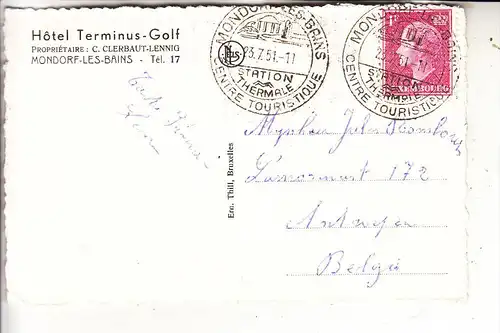 Hôtel Terminus-Golf
PROPRIÉTAIRE : C. CLERBAUT-LENNIG
MONDORF-LES-BAINS - Tél. 17
MONDORF-LES-BAINS
23.7.51.-11
STATION
THERMALE
CENTRE TOURISTIQUE
MONDORF-LES-BAINS
STATION
THERMALE
CENTRE TOURISTIQUE
LUXEMBOURG
Tante
Ern. Thill, Bruxelles
Jules
172
Antwerpen
België